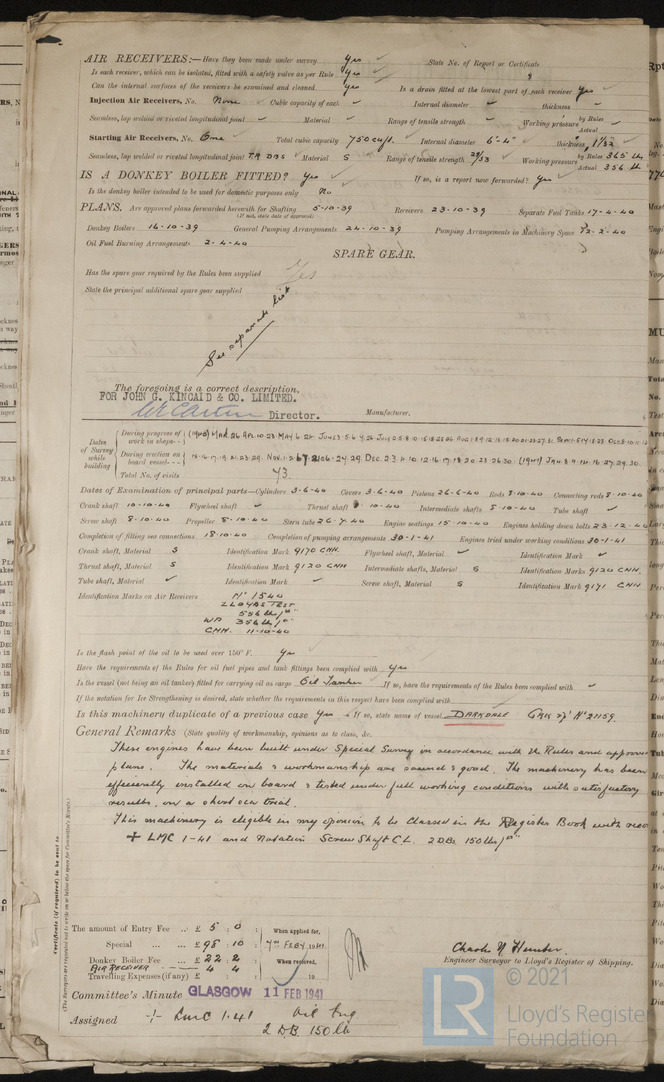 AIR RECEIVERS:—Have they been made under survey Yes State No. of Report or Certificate
Is each receiver, which can be isolated, fitted with a safety valve as per Rule Yes
Can the internal surfaces of the receivers be examined and cleaned Yes Is a drain fitted at the lowest part of each receiver Yes
Injection Air Receivers, No. None Cubic capacity of each Internal diameter thickness
Seamless, lap welded or riveted longitudinal joint Material Range of tensile strength Working pressure by Rules Actual
Starting Air Receivers, No. One Total cubic capacity 750 cu ft. Internal diameter 6'-4" thickness 1 1/32"
Seamless, lap welded or riveted longitudinal joint T.R. DBS Material S Range of tensile strength 29/33 Working pressure by Rules 365 lb Actual 356 lb
IS A DONKEY BOILER FITTED? Yes If so, is a report now forwarded? Yes
Is the donkey boiler intended to be used for domestic purposes only No
PLANS. Are approved plans forwarded herewith for Shafting 5-10-39 Receivers 23-10-39 Separate Fuel Tanks 17-4-40
(If not, state date of approval)
Donkey Boilers 14-10-39 General Pumping Arrangements 24-10-39 Pumping Arrangements in Machinery Space 12-2-40
Oil Fuel Burning Arrangements 2-4-40
SPARE GEAR.
Has the spare gear required by the Rules been supplied Yes
State the principal additional spare gear supplied
See separate list
The foregoing is a correct description,
FOR JOHN G. KINCAID & CO. LIMITED.
Director. Manufacturer.
Dates of Survey while building
During progress of work in shops
During erection on board vessel
Total No. of visits 43
Dates of Examination of principal parts—Cylinders 3-6-40 Covers 3-6-40 Pistons 26-6-40 Rods 8-10-40 Connecting rods 8-10-40
Crank shaft 10-10-40 Flywheel shaft Thrust shaft 8-10-40 Intermediate shafts 8-10-40 Tube shaft
Screw shaft 8-10-40 Propeller 8-10-40 Stern tube 26-7-40 Engine seatings 15-10-40 Engines holding down bolts 23-12-40
Completion of fitting sea connections 18-10-40 Completion of pumping arrangements 30-1-41 Engines tried under working conditions 30-1-41
Crank shaft, Material S Identification Mark 9170 CHH. Flywheel shaft, Material Identification Mark
Thrust shaft, Material S Identification Mark 9120 CHH Intermediate shafts, Material S Identification Marks 9120 CHH.
Tube shaft, Material Identification Mark Screw shaft, Material S Identification Mark 9171 CHH
Identification Marks on Air Receivers No 1540
LLOYDS TEST
556 lb/□"
WP 356 lb/□"
CHH. 11-10-40
Is the flash point of the oil to be used over 150° F. Yes
Have the requirements of the Rules for oil fuel pipes and tank fittings been complied with Yes
Is the vessel (not being an oil tanker) fitted for carrying oil as cargo Oil Tanker If so, have the requirements of the Rules been complied with
If the notation for Ice Strengthening is desired, state whether the requirements in this respect have been complied with
Is this machinery duplicate of a previous case Yes If so, state name of vessel DARKDALE Grk rpt No 21159.
General Remarks (State quality of workmanship, opinions as to class, &c.
These engines have been built under Special Survey in accordance with the Rules and approved
plans. The materials & workmanship are sound & good. The machinery has been
efficiently installed on board & tested under full working conditions with satisfactory
results, on a short sea trial.
This machinery is eligible in my opinion to be classed in the Register Book with
+ LMC 1-41 and notation Screw Shaft CL. 2 DBs 150 lbs/□"
Certificate (if required) to be sent to
(The Surveyors are requested not to write on or below the space for Committee's Minute.)
The amount of Entry Fee .. £ 5 : 0 : When applied for,
Special ... £ 98 : 10 : 4th FEBY 1941
Donkey Boiler Fee ... £ 22 : 2 When received,
AIR RECEIVER 4 4
Travelling Expenses (if any) £ 19
Charles N Hunter
Engineer Surveyor to Lloyd's Register of Shipping.
Committee's Minute GLASGOW 11 FEB 1941
Assigned + LMC 1.41 Oil Eng
2 D.B. 150 lb
© 2021
LR Lloyd's Register
Foundation